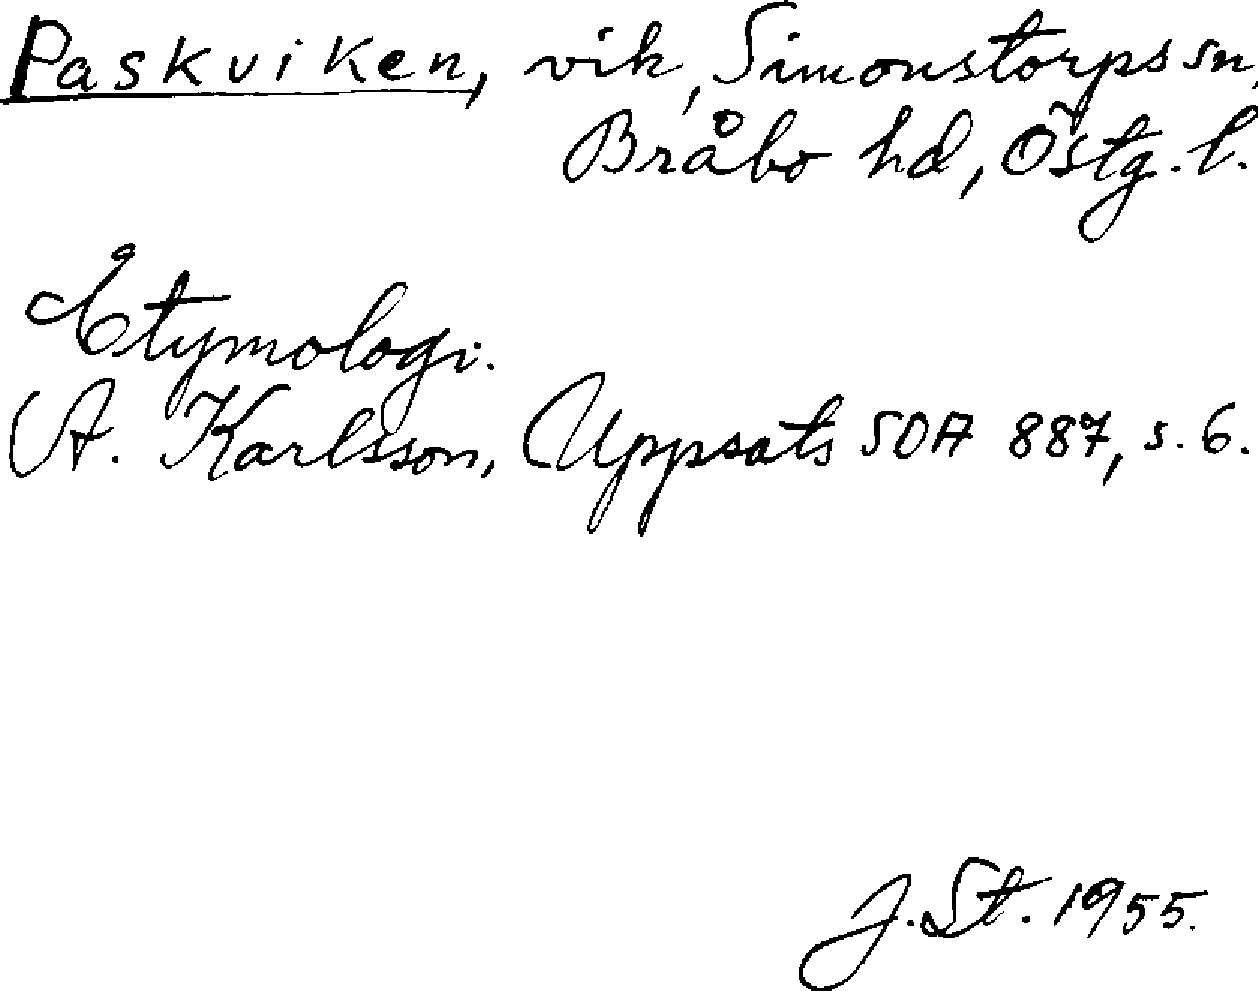 Paskviken, vik, Simonstorps sn,
Bråbo hd, Östg. l.
Etymologi.
A. Karlsson, Uppsats SOA 887, s. 6.
J. St. 1955.